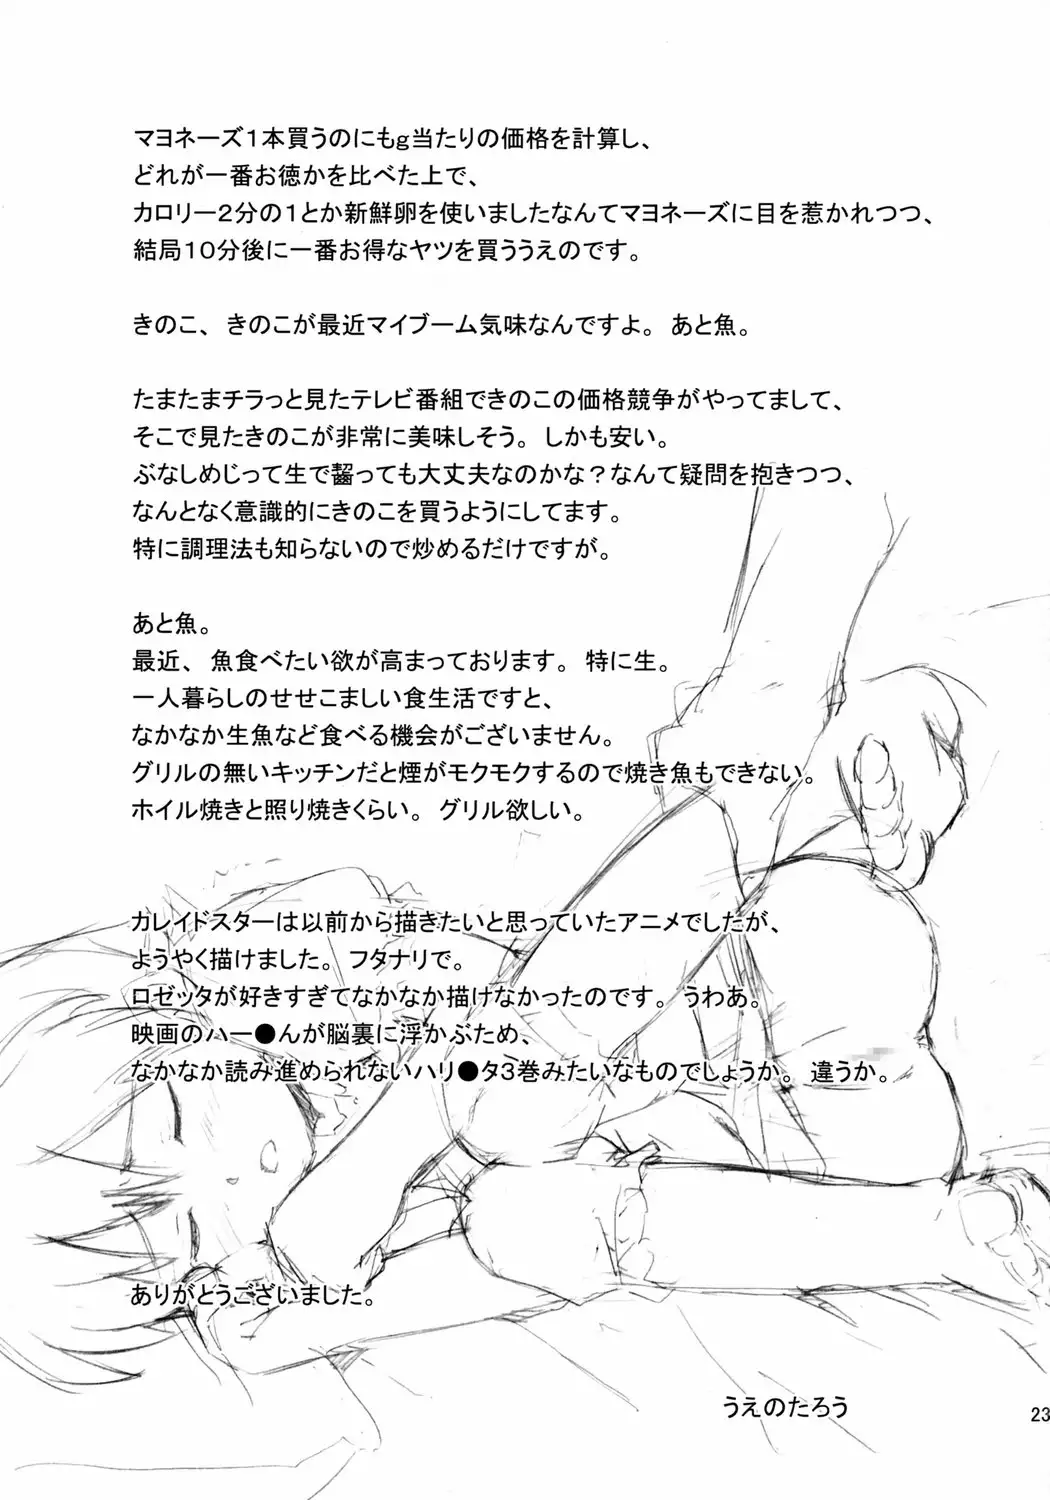 マヨネーズ１本買うのにもg当たりの価格を計算し、
どれが一番お徳かを比べた上で、
カロリー２分の１とか新鮮卵を使いましたなんてマヨネーズに目を惹かれつつ、
結局１０分後に一番お得なヤツを買ううえのです。
きのこ、きのこが最近マイブーム気味なんですよ。あと魚。
たまたまチラっと見たテレビ番組できのこの価格競争がやってまして、
そこで見たきのこが非常に美味しそう。しかも安い。
ぶなしめじって生で齧っても大丈夫なのかな？なんて疑問を抱きつつ、
なんとなく意識的にきのこを買うようにしてます。
特に調理法も知らないので炒めるだけですが。
あと魚。
最近、魚食べたい欲が高まっております。特に生。
一人暮らしのせせこましい食生活ですと、
なかなか生魚など食べる機会がございません。
グリルの無いキッチンだと煙がモクモクするので焼き魚もできない。
ホイル焼きと照り焼きくらい。グリル欲しい。
カレイドスターは以前から描きたいと思っていたアニメでしたが、
ようやく描けました。フタナリで。
ロゼッタが好きすぎてなかなか描けなかったのです。うわあ。
映画のハー●んが脳裏に浮かぶため、
なかなか読み進められないハリ●タ３巻みたいなものでしょうか。違うか。
ありがとうございました。
うえのたろう
23